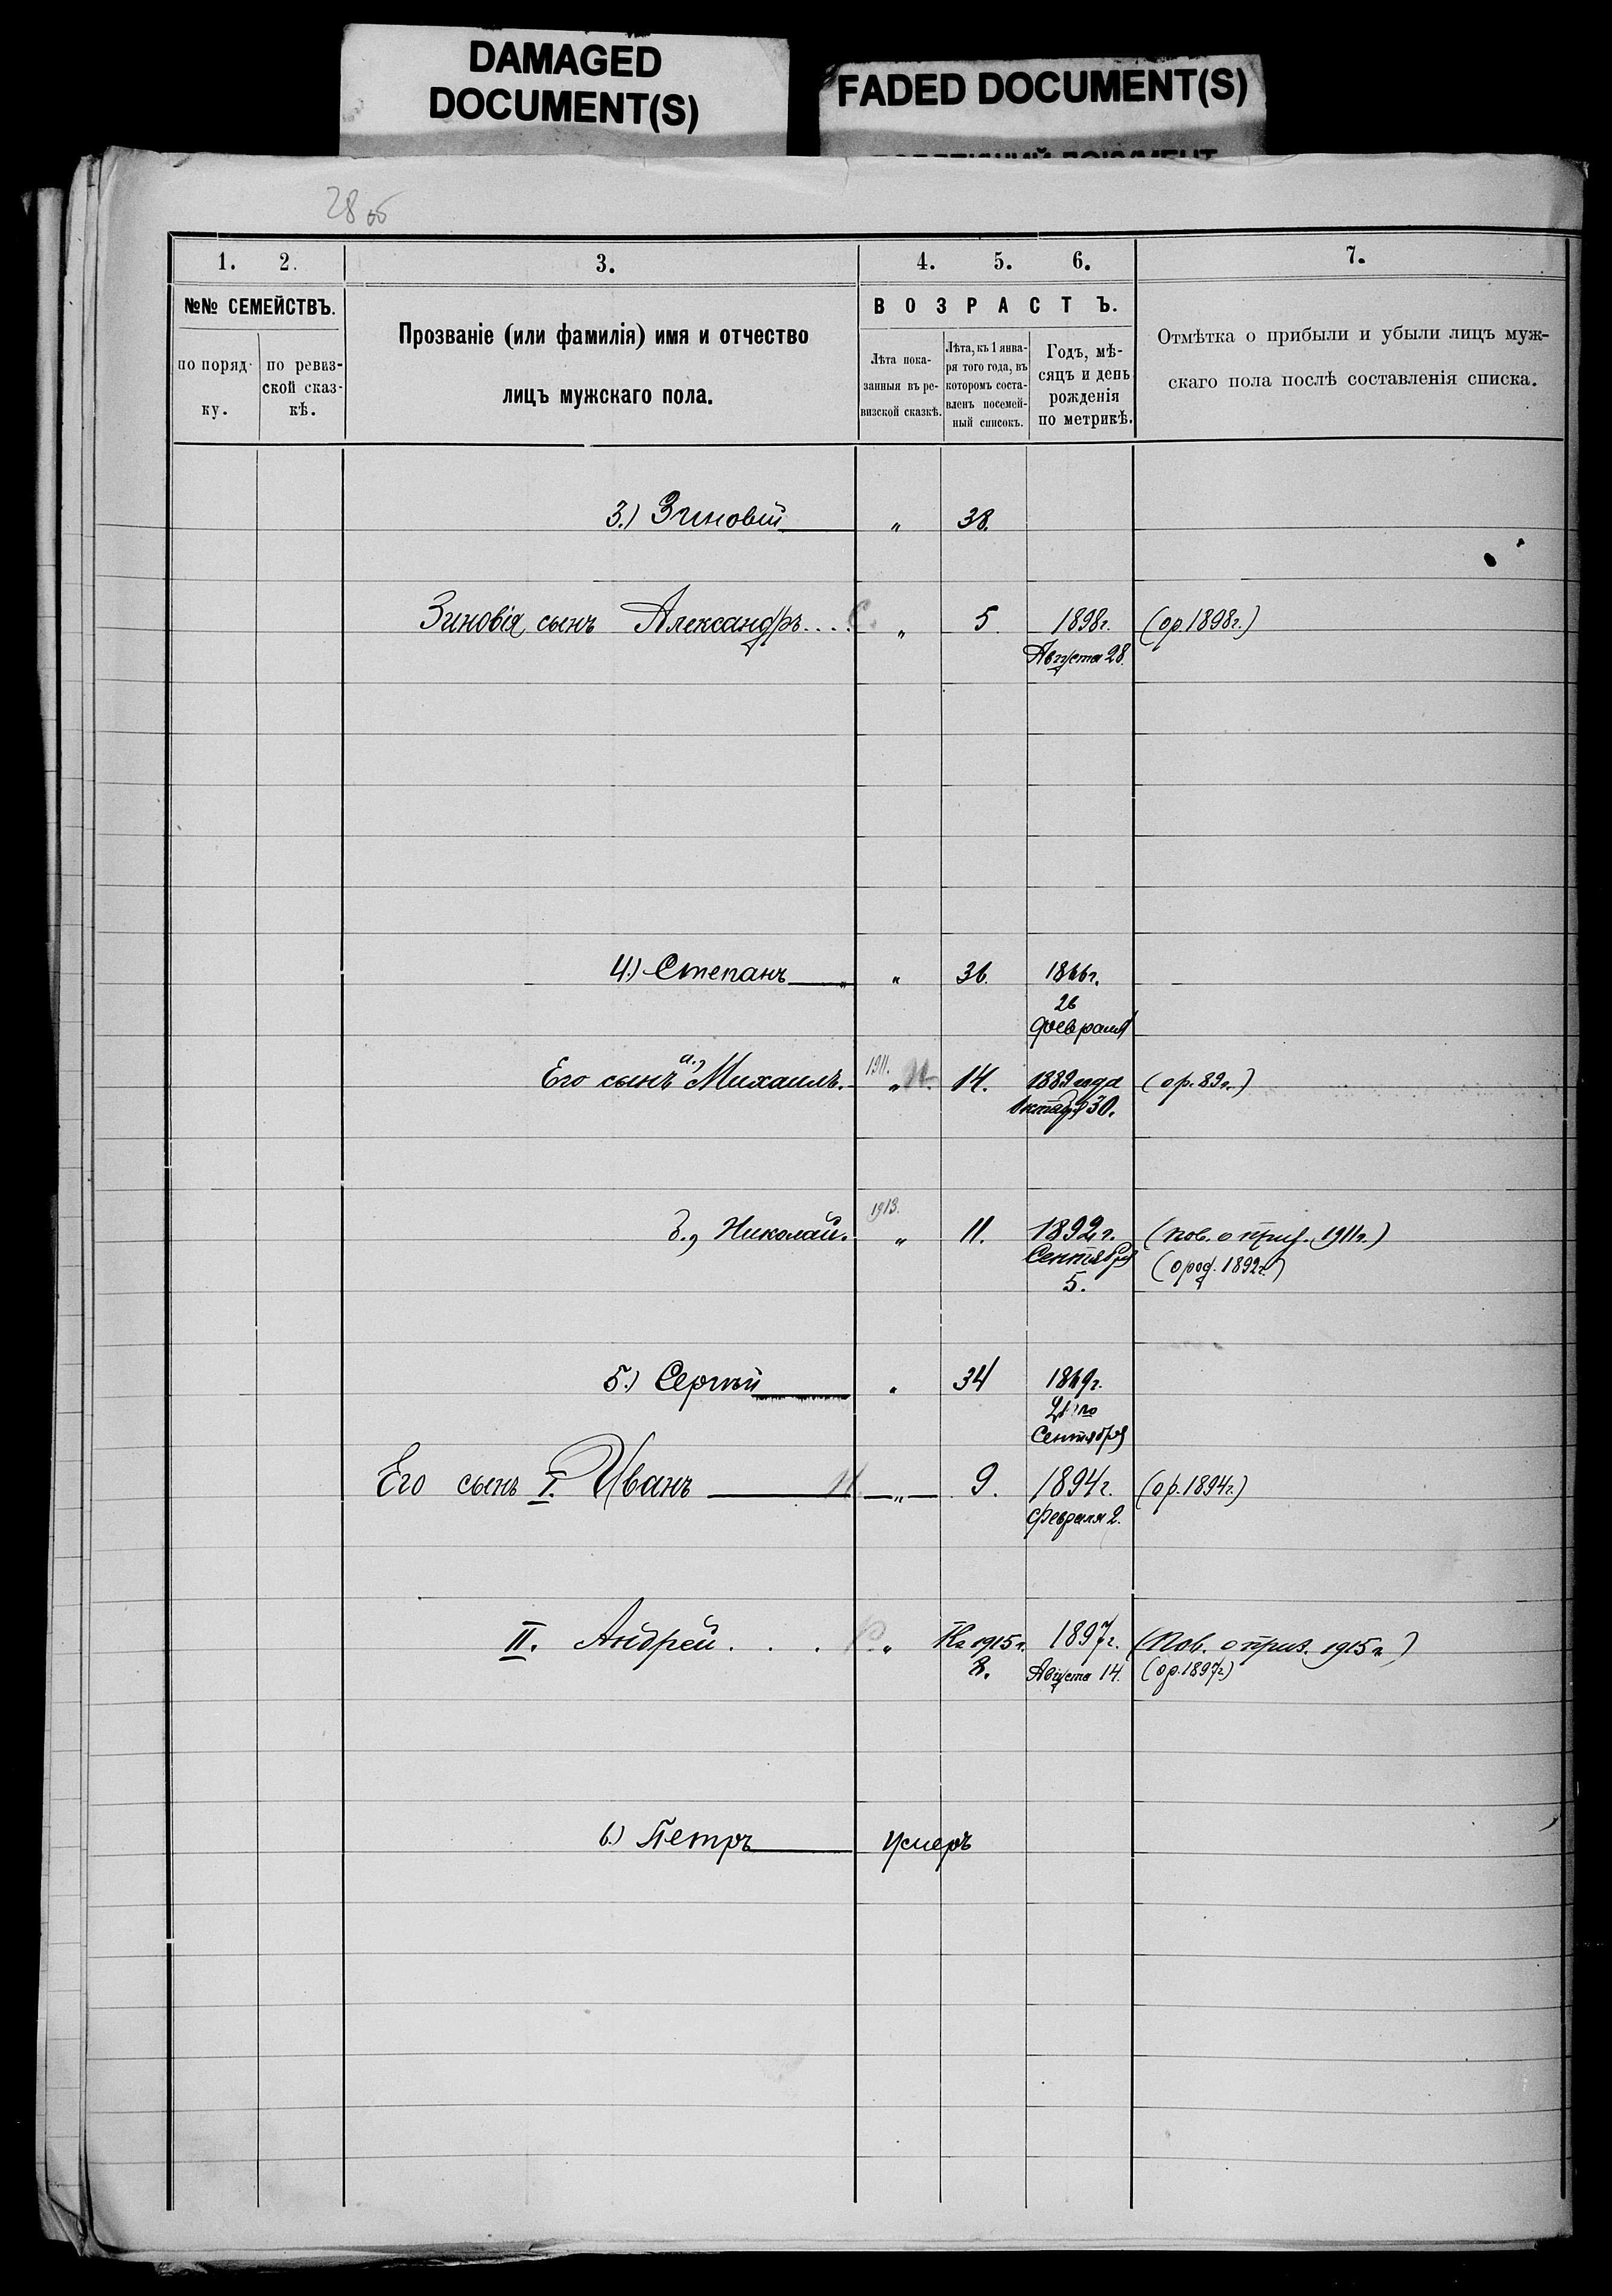 DAMAGED
DOCUMENT(S)
FADED DOCUMENT(S)
28 об
1. 2. 3. 4. 5. 6. 7.
№№ СЕМЕЙСТВЪ.
по поряд-
ку.
по ревиз-
ской сказ-
кѣ.
Прозваніе (или фамилія) имя и отчество
лицъ мужскаго пола.
ВОЗРАСТЪ.
Лѣта пока-
занныя въ ре-
визской сказкѣ.
Лѣта, къ 1 янва-
ря того года, въ
которомъ соста-
вленъ посемей-
ный списокъ.
Годъ, мѣ-
сяцъ и день
рожденія
по метрикѣ.
Отмѣтка о прибыли и убыли лицъ муж-
скаго пола послѣ составленія списка.
3.) Зиновій „ 38.
Зиновія сынъ Александръ.... „ 5. 1898г. (ор. 1898г.)
Августа 28.
4.) Степанъ „ „ 36. 1866г.
26
февраля
Его сынъ а., Михаилъ. 1911. „ 14. 1889 года (ор. 89г.)
Октяб. 30.
1913.
б., Николай. „ 11. 1892г. (пов. о приз. 1911г.)
Сентября (о род. 1892г.)
5.
5.) Сергѣй „ 34 1869г.
Сентября
Его сынъ I. Иванъ „ 9. 1894г. (ор. 1894г.)
Февраля 2.
II. Андрей . . . „ На 1915г. 1897г. (Пов. о приз. 1915г.)
8. Августа 14. (ор. 1897г.)
6.) Петръ умеръ